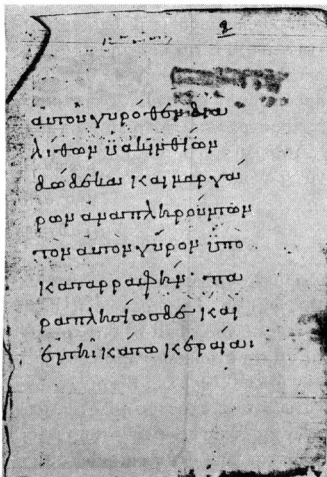 2
αὐτοῦ γυρόθεν δια
λίθων ὑακινθίων
δώδεκα καὶ μαργά
ρων ἀναπληρούντων
τὸν αὐτὸν γύρον ὑπο
καταρραφήν· πα
ραπλησίως δὲ καὶ
ἐν τῆι κάτω κεραίαι